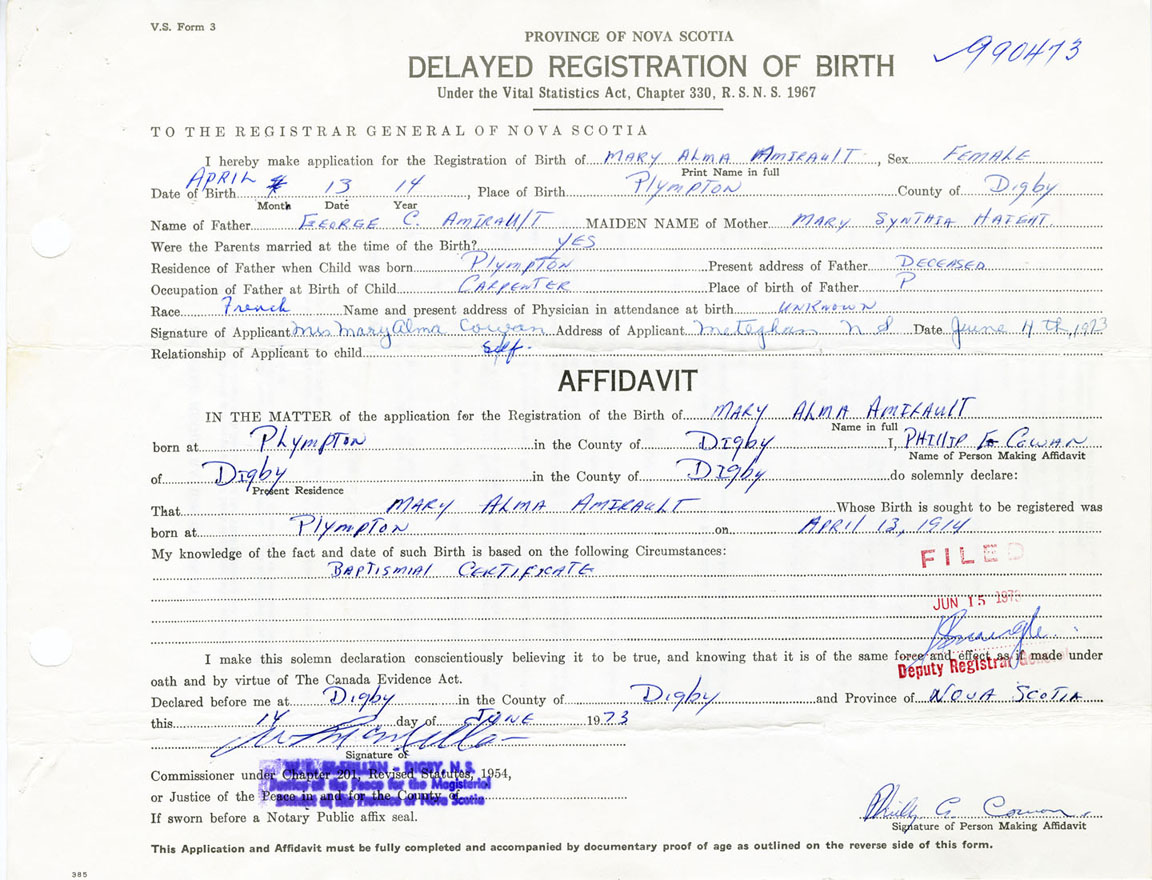 V.S. Form 3
PROVINCE OF NOVA SCOTIA
990473
DELAYED REGISTRATION OF BIRTH
Under the Vital Statistics Act, Chapter 330, R.S.N.S. 1967
TO THE REGISTRAR GENERAL OF NOVA SCOTIA
I hereby make application for the Registration of Birth of MARY ALMA AMIRAULT, Sex FEMALE
Print Name in full
Date of Birth APRIL 13 14, Place of Birth Plympton County of Digby
Month Date Year
Name of Father GEORGE C. AMIRAULT MAIDEN NAME of Mother MARY SYNTHIA HAIGHT
Were the Parents married at the time of the Birth? YES
Residence of Father when Child was born Plympton Present address of Father DECEASED
Occupation of Father at Birth of Child CARPENTER Place of birth of Father P
Race French Name and present address of Physician in attendance at birth UNKNOWN
Signature of Applicant Mrs Mary Alma Cowan Address of Applicant Meteghan N S Date June 11th, 1973
Relationship of Applicant to child Self.
AFFIDAVIT
IN THE MATTER of the application for the Registration of the Birth of MARY ALMA AMIRAULT
Name in full
born at Plympton in the County of Digby I, PHILLIP COWAN
Name of Person Making Affidavit
of Digby in the County of Digby do solemnly declare:
Present Residence
That MARY ALMA AMIRAULT Whose Birth is sought to be registered was
born at Plympton on APRIL 13, 1914
My knowledge of the fact and date of such Birth is based on the following Circumstances:
BAPTISMIAL CERTIFICATE
FILED
JUN 15 1973
I make this solemn declaration conscientiously believing it to be true, and knowing that it is of the same force and effect as if made under
Deputy Registrar General
oath and by virtue of The Canada Evidence Act.
Declared before me at Digby in the County of Digby and Province of NOVA SCOTIA
this 14 day of JUNE 1973
Signature of
W. L. McMILLAN - DIGBY, N.S.
Commissioner under Chapter 201, Revised Statutes, 1954,
Justice of the Peace for the Magisterial
or Justice of the Peace in and for the County of
District of the Province of Nova Scotia
If sworn before a Notary Public affix seal.
Phillip Cowan
Signature of Person Making Affidavit
This Application and Affidavit must be fully completed and accompanied by documentary proof of age as outlined on the reverse side of this form.
385